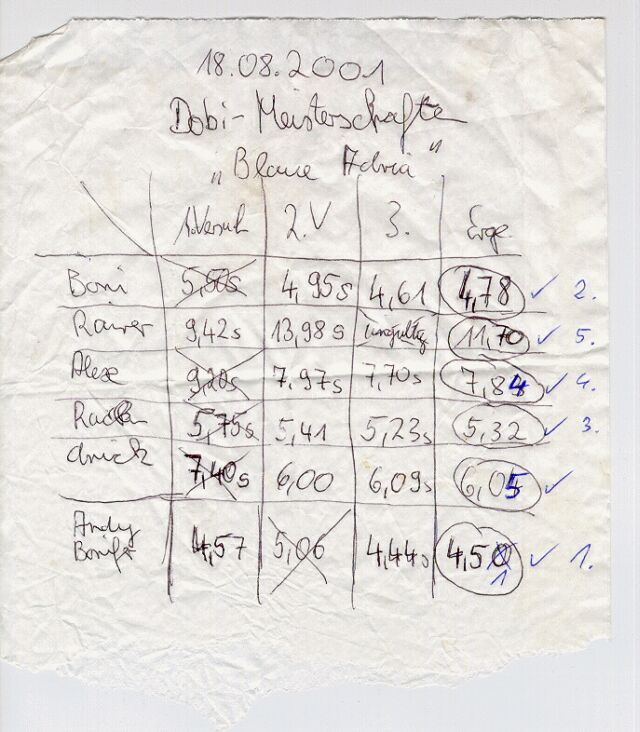 18.08.2001
Dobi-Meisterschaften
"Blaue Adria"
1.Versuch 2.V 3. Erge
Boni 5,80s 4,95s 4,61 4,78 ✓ 2.
Rainer 9,42s 13,98s ungültig 11,70 ✓ 5.
Alex 9,20s 7,97s 7,70s 7,84 ✓ 4.
5,75s 5,41 5,23s 5,32 ✓ 3.
7,40s 6,00 6,09s 6,05 ✓
Andy
4,57 5,06 4,44s 4,50 ✓ 1.
1